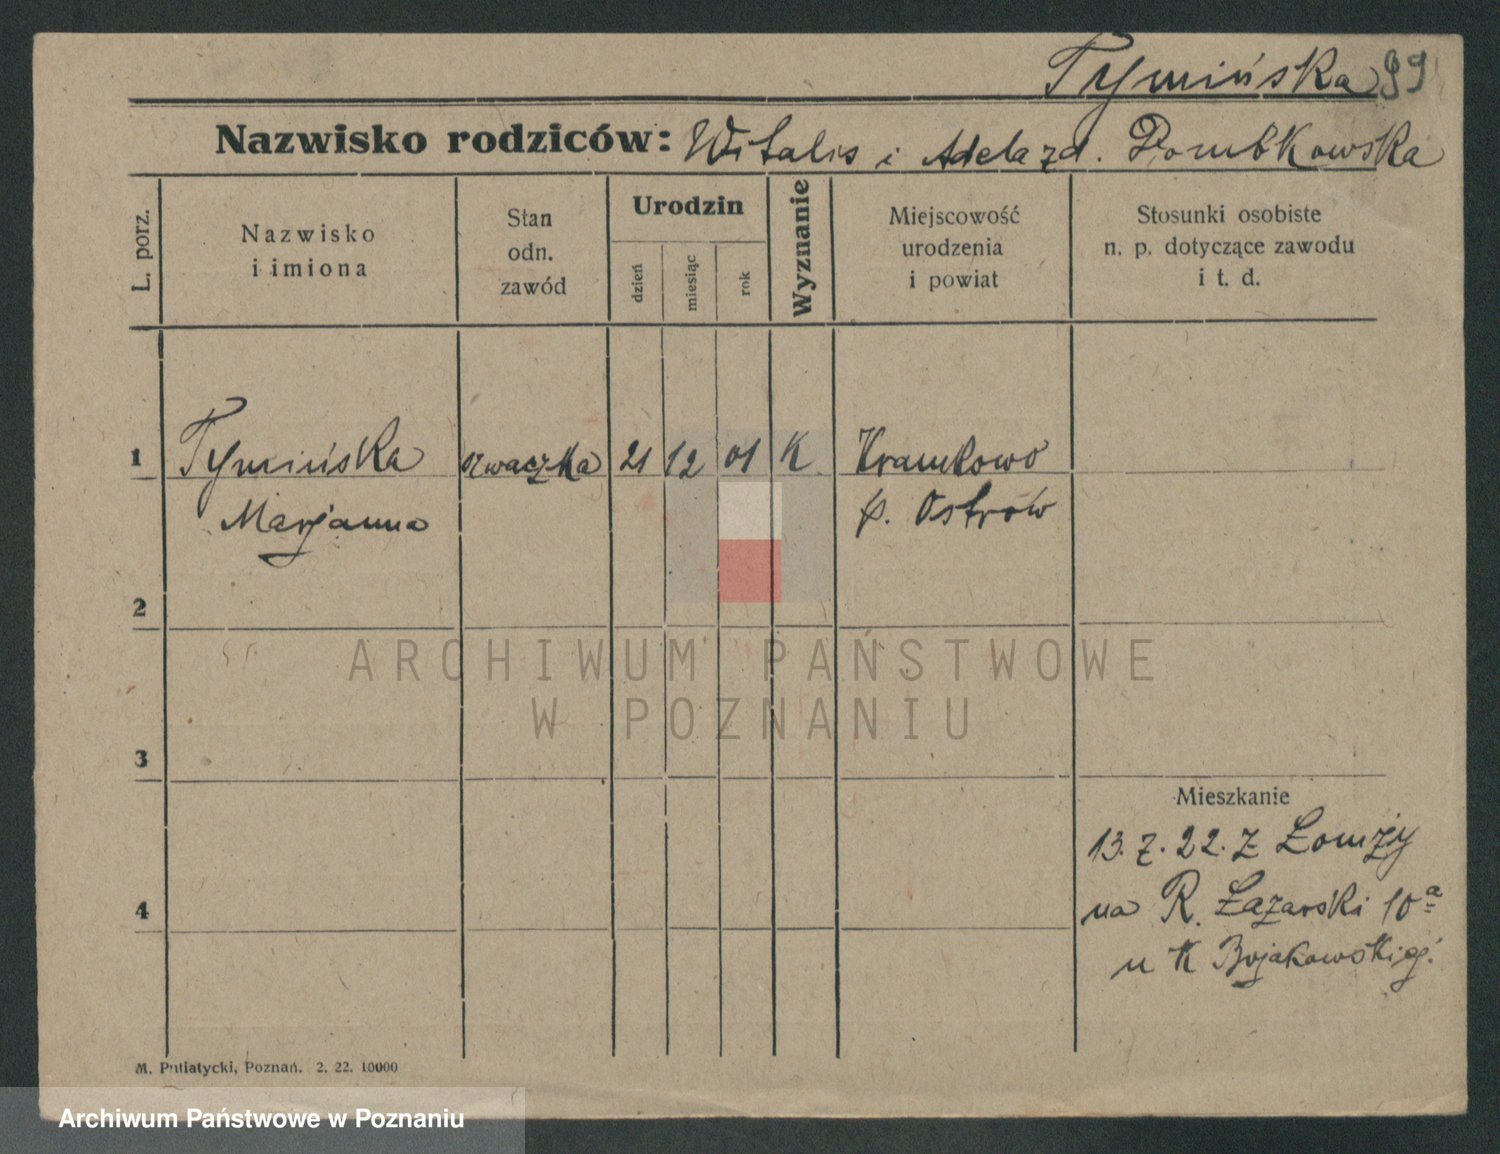 Tymińska 99
Nazwisko rodziców: Witalis i Adela zd. Dombkowska
L. porz.
Nazwisko
i imiona
Stan
odn.
zawód
Urodzin
dzień
miesiąc
rok
Wyznanie
Miejscowość
urodzenia
i powiat
Stosunki osobiste
n. p. dotyczące zawodu
i t. d.
1 Tymińska szwaczka 21 12 01 K Kramkowo
Marjanna p. Ostrów
2
ARCHIWUM PAŃSTWOWE
W POZNANIU
3
Mieszkanie
13. 7. 22. z Łomży
na R. Łazarski 10a
4
u K Bojakowskiej
M. Putiatycki, Poznań. 2. 22. 10000
Archiwum Państwowe w Poznaniu